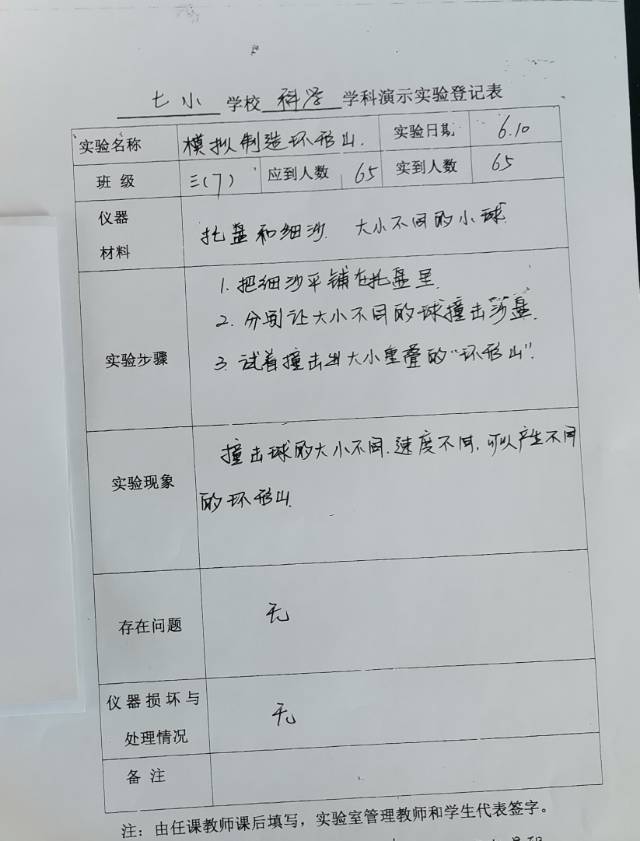 七小 学校 科学 学科演示实验登记表
实验名称 模拟制造环形山. 实验日期 6.10
班 级 三(7) 应到人数 65 实到人数 65
仪器
材料
托盘和细沙. 大小不同的小球
实验步骤
1. 把细沙平铺在托盘里.
2. 分别让大小不同的球撞击沙盘.
3. 试着撞击出大小重叠的“环形山”.
实验现象
撞击球的大小不同.速度不同.可以产生不同
的环形山.
存在问题 无
仪器损坏与
处理情况
无
备 注
注：由任课教师课后填写，实验室管理教师和学生代表签字。